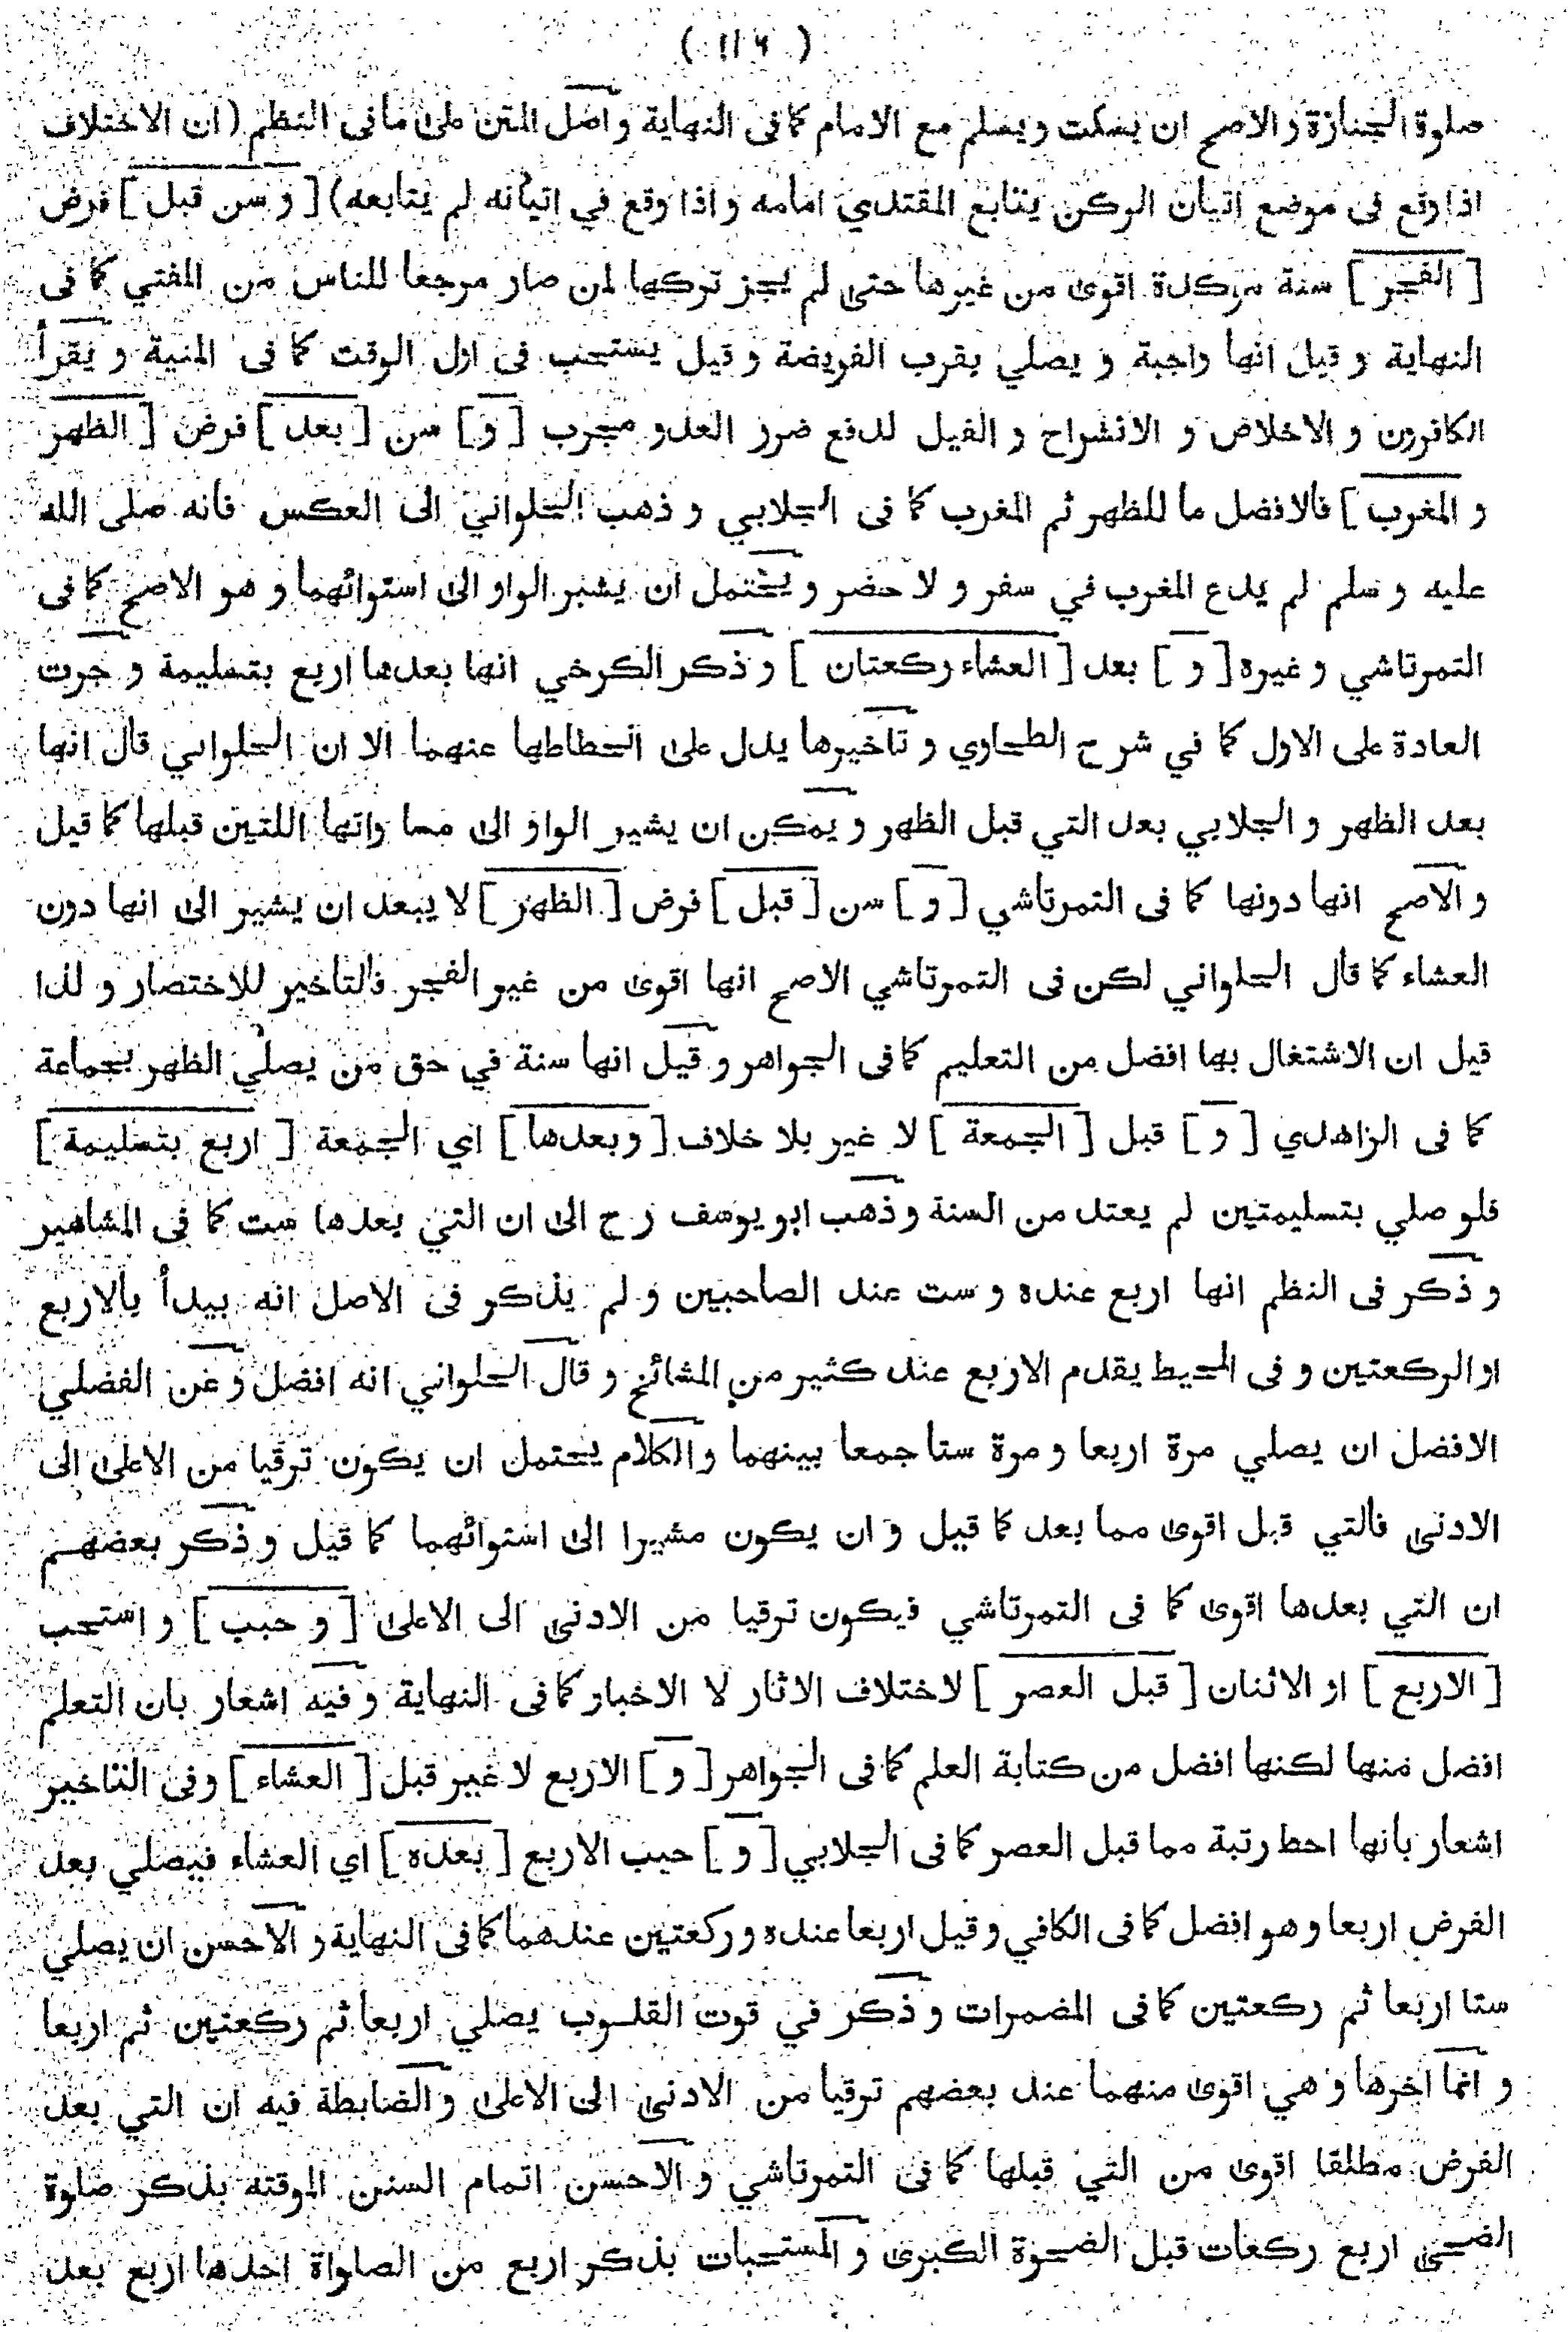 ( ١١٦ )
صلوة الجنازة والاصح ان يسكت ويسلم مع الامام كما فى النهاية واصل المتن على مافى النظم (ان الاختلاف
اذا وقع فى موضع اتيان الركن يتابع المقتدي امامه واذا وقع في اتيانه لم يتابعه) [ و سن قبل ] فرض
[ الفجر ] سنة مؤكدة اقوى من غيرها حتى لم يجز تركها لمن صار مرجعا للناس من المفتي كما فى
النهاية و قيل انها واجبة و يصلي بقرب الفريضة و قيل يستحب فى اول الوقت كما فى المنية و يقرأ
الكافرون و الاخلاص و الانشراح و الفيل لدفع ضرر العدو مجرب [ و ] سن [ بعد ] فرض [ الظهر
و المغرب ] فالافضل ما للظهر ثم المغرب كما فى الجلابي و ذهب الحلواني الى العكس فانه صلى الله
عليه و سلم لم يدع المغرب في سفر و لا حضر و يحتمل ان يشير الواو الى استوائهما و هو الاصح كما فى
التمرتاشي و غيره [ و ] بعد [ العشاء ركعتان ] و ذكر الكرخي انها بعدها اربع بتسليمة و جرت
العادة على الاول كما في شرح الطحاوي و تاخيرها يدل على انحطاطها عنهما الا ان الحلواني قال انها
بعد الظهر و الجلابي بعد التي قبل الظهر و يمكن ان يشير الواو الى مساواتها اللتين قبلها كما قيل
و الاصح انها دونها كما فى التمرتاشي [ و ] سن [ قبل ] فرض [ الظهر ] لا يبعد ان يشير الى انها دون
العشاء كما قال الحلواني لكن فى التمرتاشي الاصح انها اقوى من غير الفجر فالتاخير للاختصار و لذا
قيل ان الاشتغال بها افضل من التعليم كما فى الجواهر و قيل انها سنة في حق من يصلي الظهر بجماعة
كما فى الزاهدي [ و ] قبل [ الجمعة ] لا غير بلا خلاف [ وبعدها ] اي الجمعة [ اربع بتسليمة ]
فلو صلي بتسليمتين لم يعتد من السنة و ذهب ابو يوسف رح الى ان التي بعدها ست كما فى المشاهير
و ذكر فى النظم انها اربع عنده و ست عند الصاحبين و لم يذكر فى الاصل انه يبدأ بالاربع
او الركعتين و فى المحيط يقدم الاربع عند كثير من المشائخ و قال الحلواني انه افضل و عن الفضلي
الافضل ان يصلي مرة اربعا و مرة ستا جمعا بينهما و الكلام يحتمل ان يكون ترقيا من الاعلى الى
الادنى فالتي قبل اقوى مما بعد كما قيل و ان يكون مشيرا الى استوائهما كما قيل و ذكر بعضهم
ان التي بعدها اقوى كما فى التمرتاشي فيكون ترقيا من الادنى الى الاعلى [ و حبب ] و استحب
[ الاربع ] او الاثنان [ قبل العصر ] لاختلاف الاثار لا الاخبار كما فى النهاية و فيه اشعار بان التعلم
افضل منها لكنها افضل من كتابة العلم كما فى الجواهر [ و ] الاربع لا غير قبل [ العشاء ] وفى التاخير
اشعار بانها احط رتبة مما قبل العصر كما فى الجلابي [ و ] حبب الاربع [ بعده ] اي العشاء فيصلي بعد
الفرض اربعا و هو افضل كما فى الكافي و قيل اربعا عنده و ركعتين عندهما كما فى النهاية و الاحسن ان يصلي
ستا اربعا ثم ركعتين كما فى المضمرات و ذكر في قوت القلوب يصلي اربعا ثم ركعتين ثم اربعا
و انما اخرها و هي اقوى منهما عند بعضهم ترقيا من الادنى الى الاعلى و الضابطة فيه ان التي بعد
الفرض مطلقا اقوى من التي قبلها كما فى التمرتاشي و الاحسن اتمام السنن الموقته بذكر صلوة
الضحى اربع ركعات قبل الضحوة الكبرى و المستحبات بذكر اربع من الصلواة احدها اربع بعد